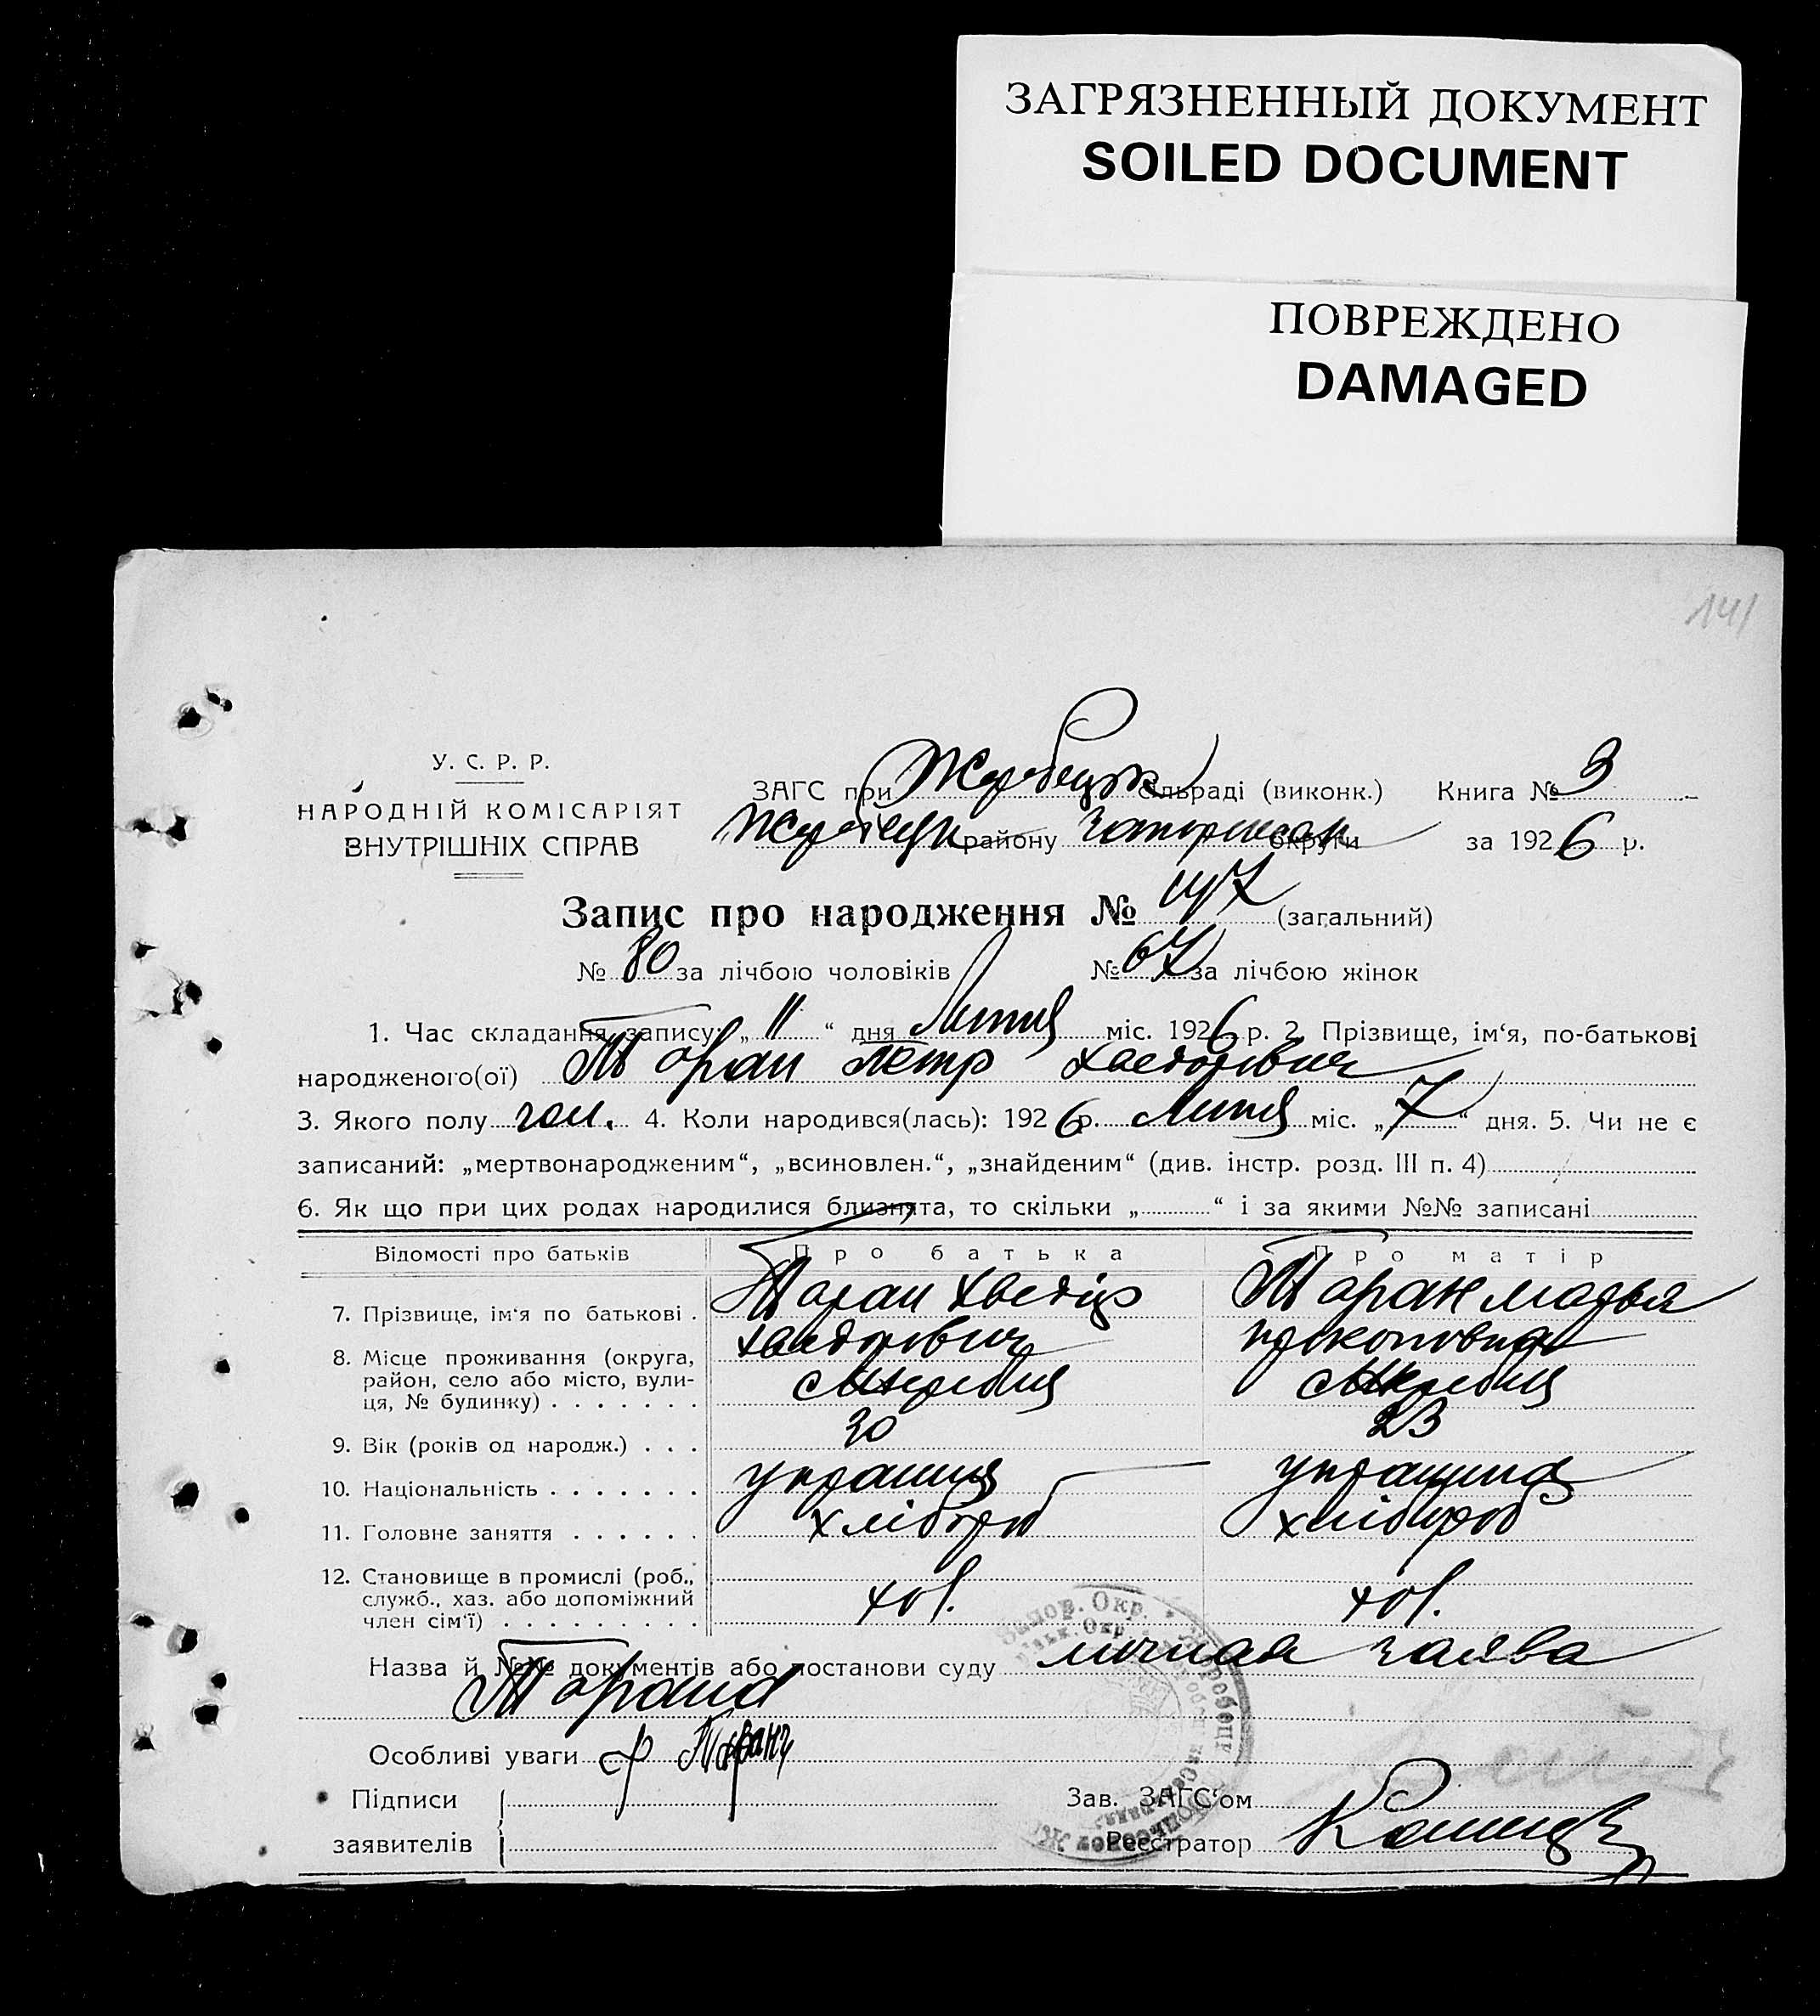 ЗАГРЯЗНЕННЫЙ ДОКУМЕНТ
SOILED DOCUMENT
ПОВРЕЖДЕНО
DAMAGED
141
У. С. Р. Р.
НАРОДНІЙ КОМІСАРІЯТ
ВНУТРІШНІХ СПРАВ
ЗАГС при Жеребецьк сільраді (виконк.) Книга № 3
Жеребецьк району Запоріжськ округи за 1926 р.
Запис про народження № 147 (загальний)
№ 80 за лічбою чоловіків № 67 за лічбою жінок
1. Час складання запису: „ 11 “ дня Липня міс. 1926 р. 2. Прізвище, ім‘я, по-батькові
народженого(ої) Таран Петр Хведорівич
3. Якого полу чол. 4. Коли народився(лась): 1926 р. Липня міс. „ 7 “ дня. 5. Чи не є
записаний: „мертвонародженим“, „всиновлен.“, „знайденим“ (див. інстр. розд. III п. 4)
6. Як що при цих родах народилися близнята, то скільки „ “ і за якими №№ записані
Відомості про батьків Про батька Про матір
7. Прізвище, ім‘я по батькові . Таран Хведір Хведорівич Таран Мар‘я Прокоповна
8. Місце проживання (округа, район, село або місто, вули-ця, № будинку) . . . . . . . с Жеребец с Жеребец
9. Вік (років од народж.) . . . 30 23
10. Національність . . . . . . . українец українка
11. Головне заняття . . . . . . хлібороб хлібороб
12. Становище в промислі (роб., служб., хаз. або допоміжний член сім‘ї) . . . . . . . . . хоз. хоз.
Назва й №№ документів або постанови суду личная заява
Тарана
Особливі уваги Ф Таранъ
Підписи
заявителів
Зав. ЗАГС‘ом
Реєстратор